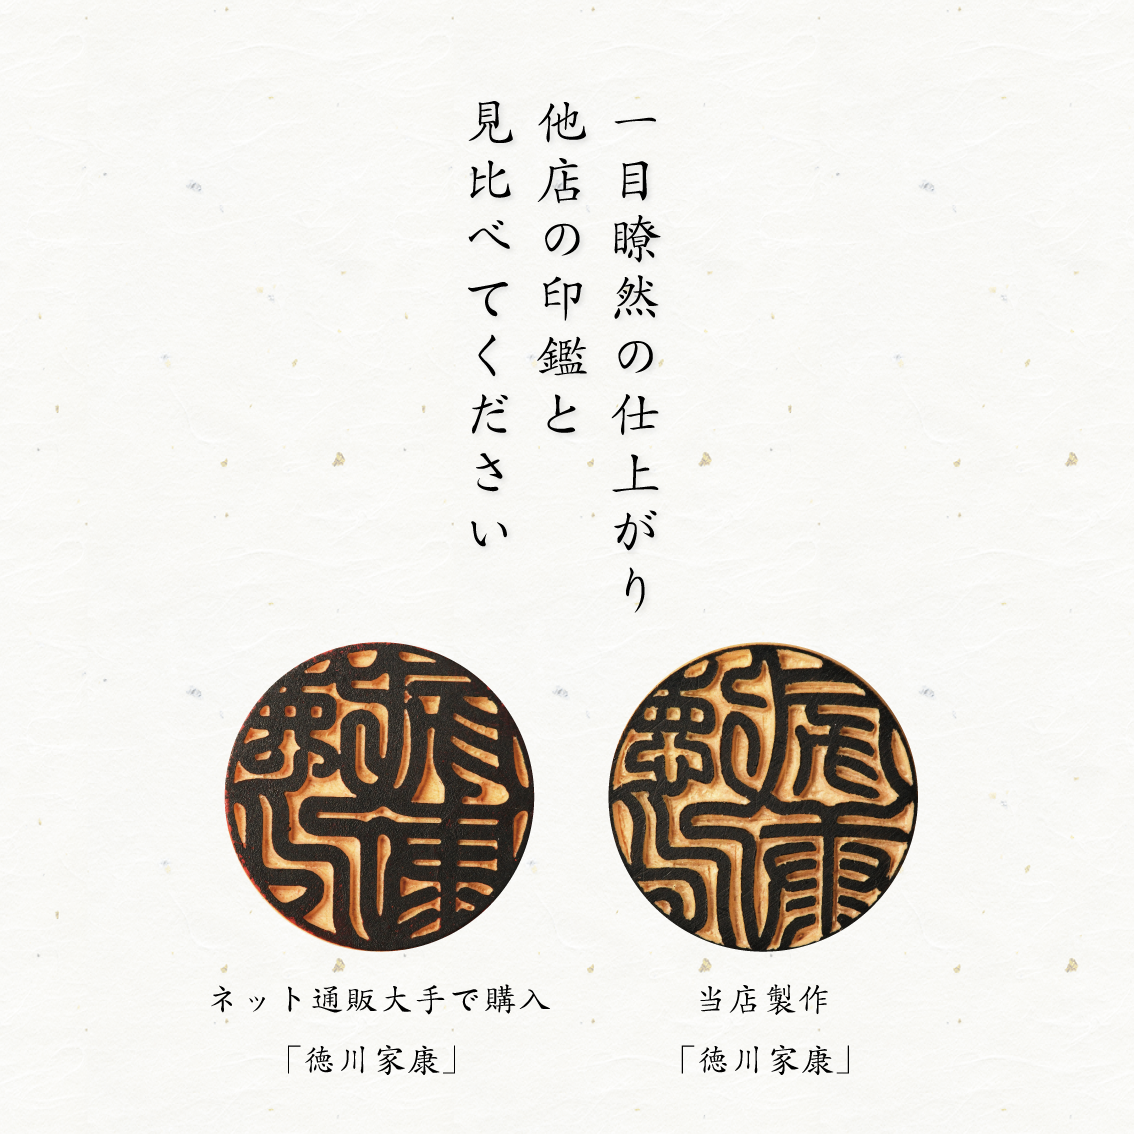 一目瞭然の仕上がり
他店の印鑑と
見比べてください
ネット通販大手で購入
「徳川家康」
当店製作
「徳川家康」